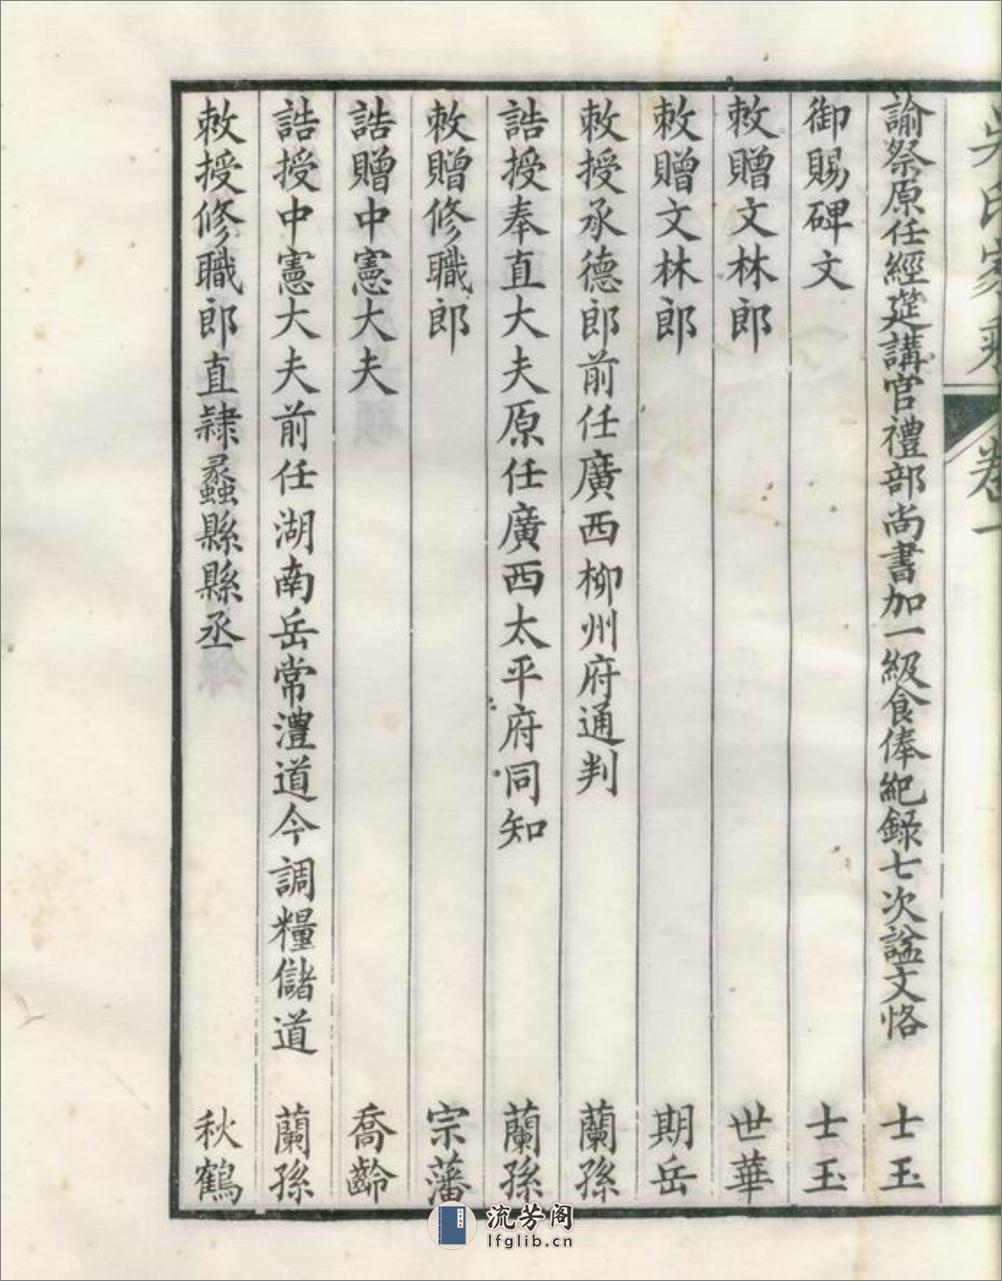 諭祭原任經筵講官禮部尚書加一級食俸紀錄七次諡文恪 士玉
御賜碑文 士玉
敕贈文林郎 世華
敕贈文林郎 期岳
敕授承德郎前任廣西柳州府通判 蘭孫
誥授奉直大夫原任廣西太平府同知 蘭孫
敕贈修職郎 宗藩
誥贈中憲大夫 喬齡
誥授中憲大夫前任湖南岳常澧道今調糧儲道 蘭孫
敕授修職郎直隸蠡縣縣丞 秋鶴
流芳阁
lfglib.cn